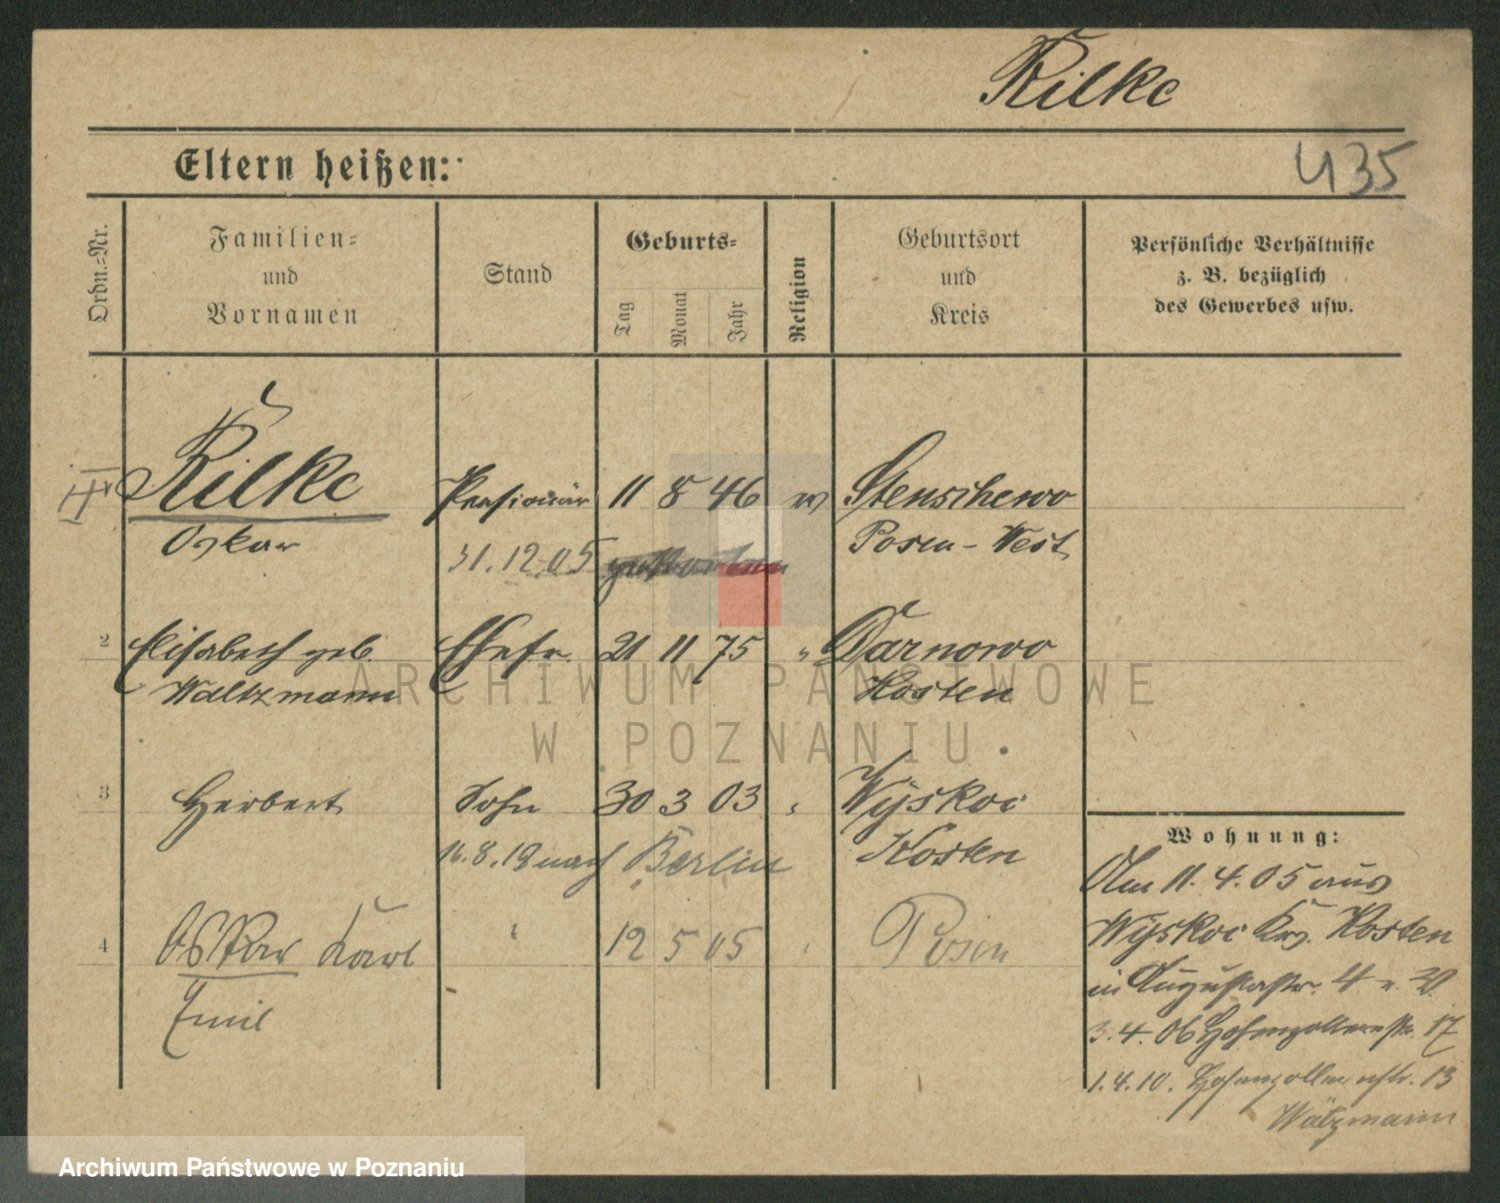 Rilke
435
Eltern heißen:
Ordn.=Nr.
Familien=
und
Vornamen
Stand
Geburts=
Tag
Monat
Jahr
Religion
Geburtsort
und
Kreis
Persönliche Verhältnisse
z. B. bezüglich
des Gewerbes usw.
Rilke Pensionär 11 8 46 Stenschewo
Oskar Posen-West
31.12.05 gestorben
2 Elisabeth geb. Ehefr. 21 11 75 " Darnowo
Waltzmann Kosten
3 Herbert Sohn 30 3 03 Wyskoc
16.8.19 nach Berlin Kosten
4 Oskar Karl " 12 5 05 Posen
Emil
Wohnung:
Am 11.4.05 aus
Wyskoc Krs. Kosten
in Augustastr. 4
3.4.06 Hohenzollernstr. 17
1.4.10. Hohenzollernstr. 13
Wätzmann
ARCHIWUM PAŃSTWOWE
W POZNANIU
Archiwum Państwowe w Poznaniu